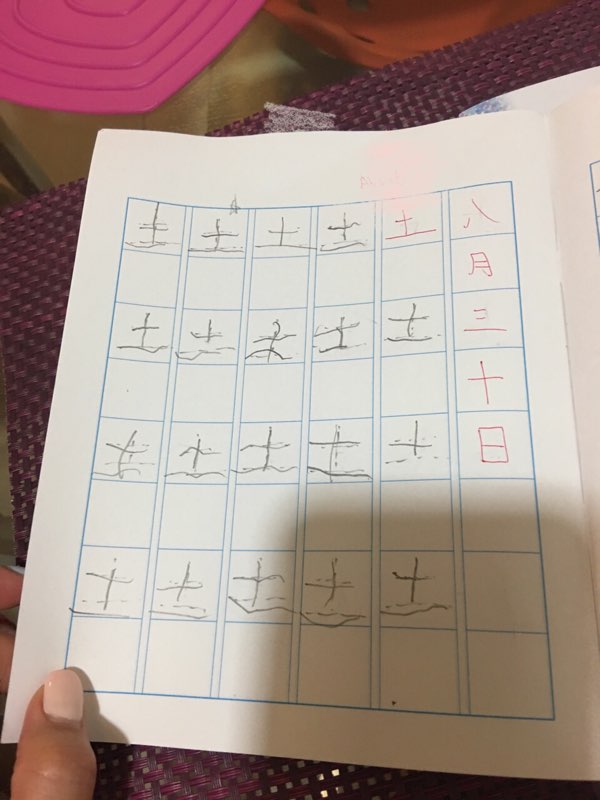 八月三十日
土土土土
土土土土
土土土土
土土土土
土土土土